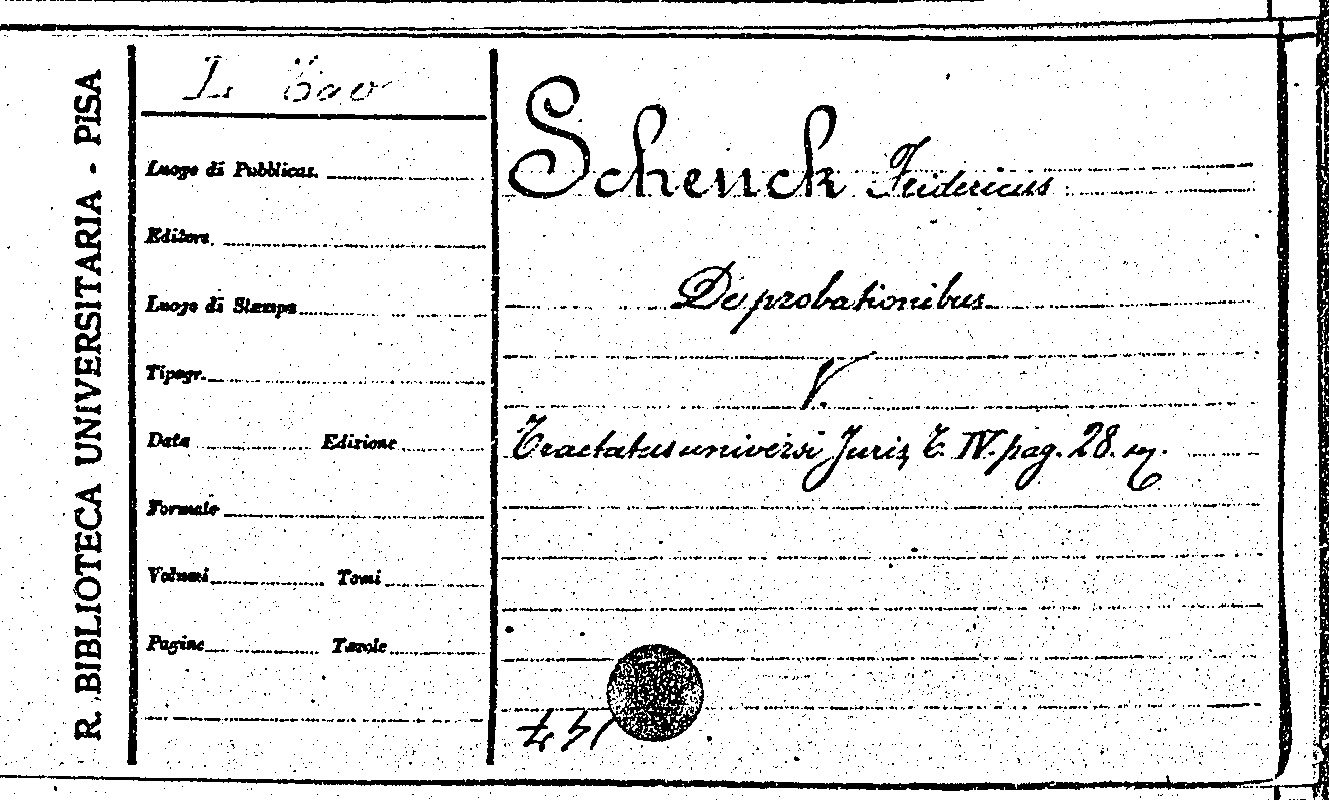 R. BIBLIOTECA UNIVERSITARIA - PISA
Luogo di Pubblicaz.
Editore
Luogo di Stampa
Tipogr.
Data Edizione
Formato
Volumi Tomi
Pagine Tavole
Schenck Fridericus
De probationibus
V.
Tractatus universi Juris T. IV. pag. 28.